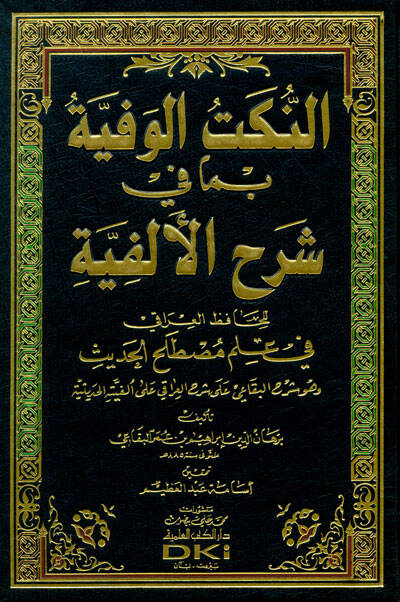 النُّكَتُ الوَفِيَّةُ
بِمَا فِي
شَرْحِ الأَلْفِيَّةِ
للحافظ العراقي
في علم مصطلح الحديث
وهو شرح البقاعي على شرح العراقي على ألفيته الحديثية
تأليف
برهان الدين إبراهيم بن عمر البقاعي
المتوفى سنة ٨٨٥ هـ
تحقيق
أسامة عبد العظيم
منشورات
محمد علي بيضون
دار الكتب العلمية
DKi
بيروت - لبنان